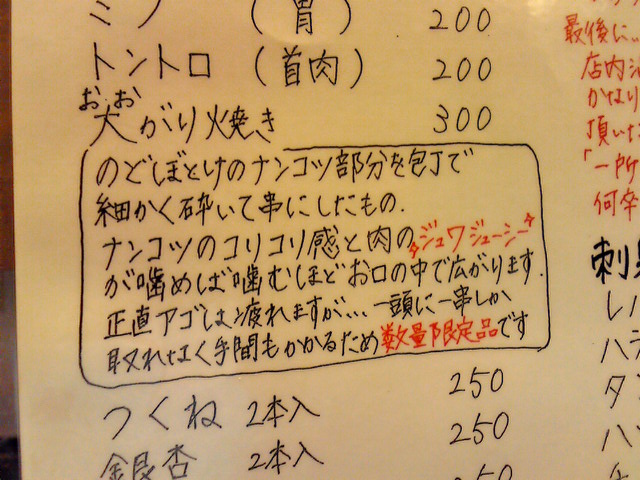 ミノ (胃) 200
トントロ (首肉) 200
おお
大がり焼き 300
のどぼとけのナンコツ部分を包丁で
細かく砕いて串にしたもの.
ナンコツのコリコリ感と肉のジュワジューシー
が噛めば噛むほどお口の中で広がります.
正直アゴは疲れますが... 一頭に一串しか
取れなく手間もかかるため数量限定品です
つくね 2本入 250
銀杏 2本入 250
最後に..
店内
かなり
頂いた
「一所
何卒
刺
レバ
ハラ
タン